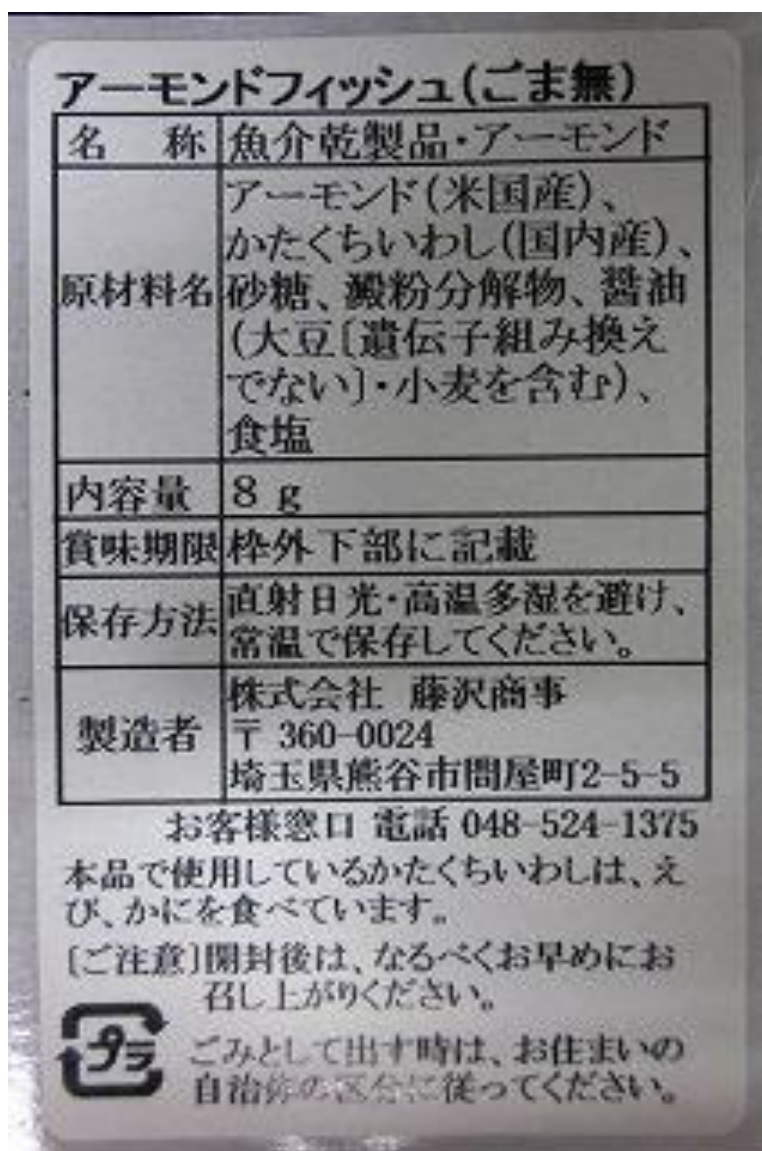 アーモンドフィッシュ(ごま無)
名 称 魚介乾製品・アーモンド
原材料名
アーモンド(米国産)、
かたくちいわし(国内産)、
砂糖、澱粉分解物、醤油
(大豆〔遺伝子組み換え
でない〕・小麦を含む)、
食塩
内容量 8 g
賞味期限 枠外下部に記載
保存方法
直射日光・高温多湿を避け、
常温で保存してください。
製造者
株式会社 藤沢商事
〒 360-0024
埼玉県熊谷市問屋町2-5-5
お客様窓口 電話 048-524-1375
本品で使用しているかたくちいわしは、え
び、かにを食べています。
〔ご注意〕開封後は、なるべくお早めにお
召し上がりください。
プラ
ごみとして出す時は、お住まいの
自治体の区分に従ってください。